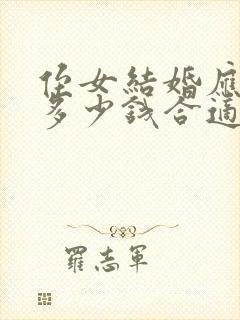 侄女結婚應
多少錢合適
羅志軍